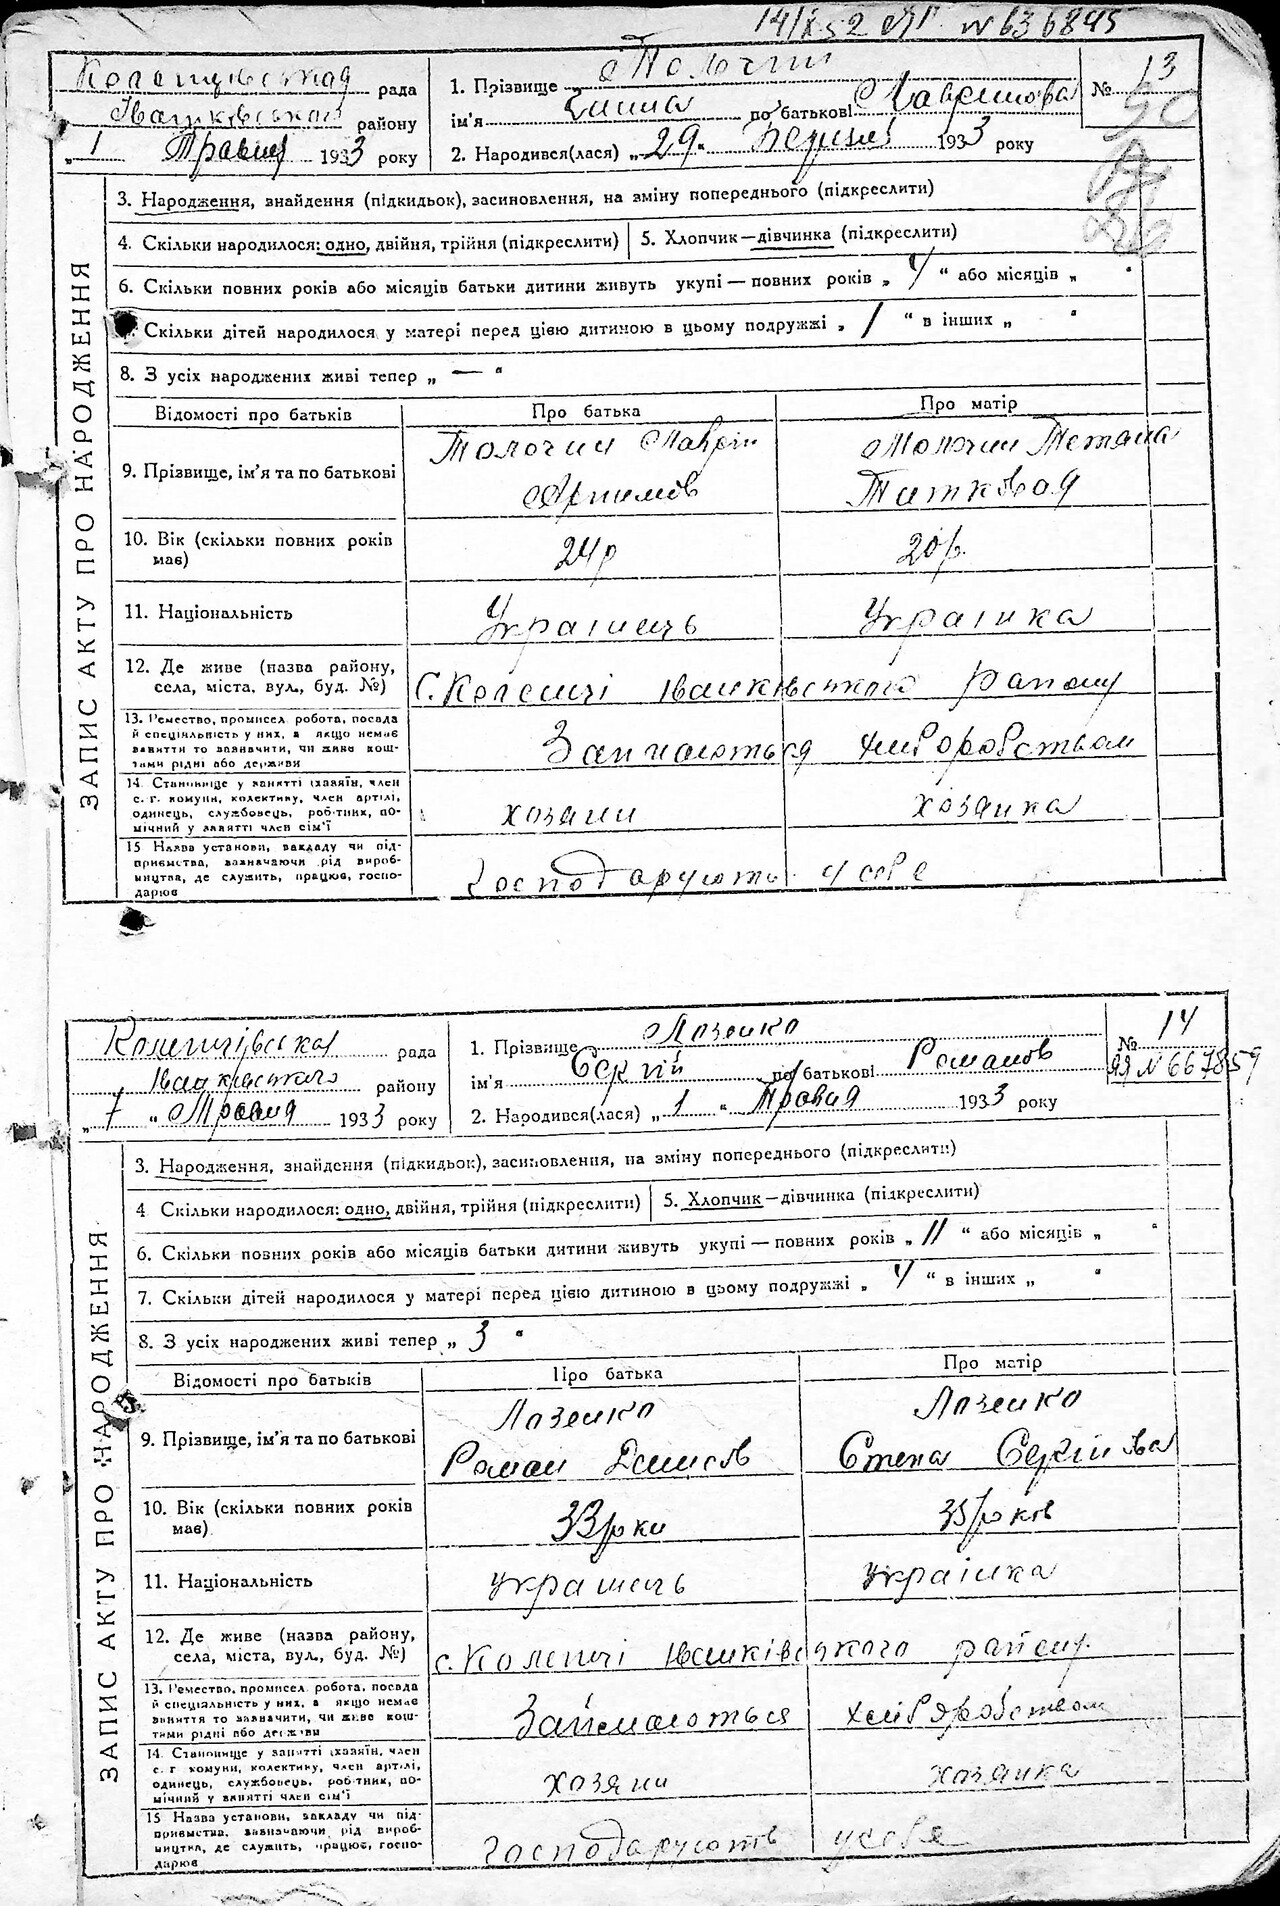 14/X 52 № 636845
рада
району
„ 1 Травня 1933 року
1. Прізвище Толочин
ім'я Ганна по батькові Лавринова
2. Народився(лася) „ 29 “ Березня 1933 року
№ 13
ЗАПИС АКТУ ПРО НАРОДЖЕННЯ
3. Народження, знайдення (підкидьок), засиновлення, на зміну попереднього (підкреслити)
4. Скільки народилося: одно, двійня, трійня (підкреслити)
5. Хлопчик—дівчинка (підкреслити)
6. Скільки повних років або місяців батьки дитини живуть укупі — повних років „ 4 “ або місяців „ “
Скільки дітей народилося у матері перед цією дитиною в цьому подружжі „ 1 “ в інших „ “
8. З усіх народжених живі тепер „ — “
Відомості про батьків Про батька Про матір
9. Прізвище, ім'я та по батькові
Толочин Лаврін Толочин Тетяна
Титковая
10. Вік (скільки повних років має) 24р 20р.
11. Національність Украінець Украінка
12. Де живе (назва району, села, міста, вул., буд. №) С. Коленці Іванківського району
13. Ремество, промисел, робота, посада й спеціяльність у них, а якщо немає заняття то зазначити, чи живе коштами рідні або держави Займаються хліборобством
14. Становище у занятті (хазяїн, член с. г. комуни, колективу, член артілі, одинець, службовець, робітник, помічний у занятті член сім'ї хозяин хозяйка
15 Назва установи, закладу чи підприємства, зазначаючи рід виробництва, де служить, працює, господарює Господарують у себе
рада
Іванківського району
„ 7 “ Травня 1933 року
1. Прізвище Лазенко
ім'я Сергій по батькові Романов
2. Народився(лася) „ 1 “ Травня 1933 року
№ 14
ЯЯ № 667859
ЗАПИС АКТУ ПРО НАРОДЖЕННЯ
3. Народження, знайдення (підкидьок), засиновлення, на зміну попереднього (підкреслити)
4 Скільки народилося: одно, двійня, трійня (підкреслити)
5. Хлопчик—дівчинка (підкреслити)
6. Скільки повних років або місяців батьки дитини живуть укупі — повних років „ 11 “ або місяців „ “
7. Скільки дітей народилося у матері перед цією дитиною в цьому подружжі „ 4 “ в інших „ “
8. З усіх народжених живі тепер „ 3 “
Відомості про батьків Про батька Про матір
9. Прізвище, ім'я та по батькові
Лазенко Лазенко
Роман Денисов Олена Сергіівва
10. Вік (скільки повних років має) 33 роки 35 років
11. Національність украінець украінка
12. Де живе (назва району, села, міста, вул., буд. №) с. Коленці Іванківського району
13. Ремество, промисел, робота, посада й спеціяльність у них, а якщо немає заняття то зазначити, чи живе коштами рідні або держави Займаються хліборобством
14. Становище у занятті (хазяїн, член с. г комуни, колективу, член артілі, одинець, службовець, робітник, помічний у занятті член сім'ї хозяин хозяйка
15 Назва установи, закладу чи підприємства, зазначаючи рід виробництва, де служить, працює, господарює господарують у себе